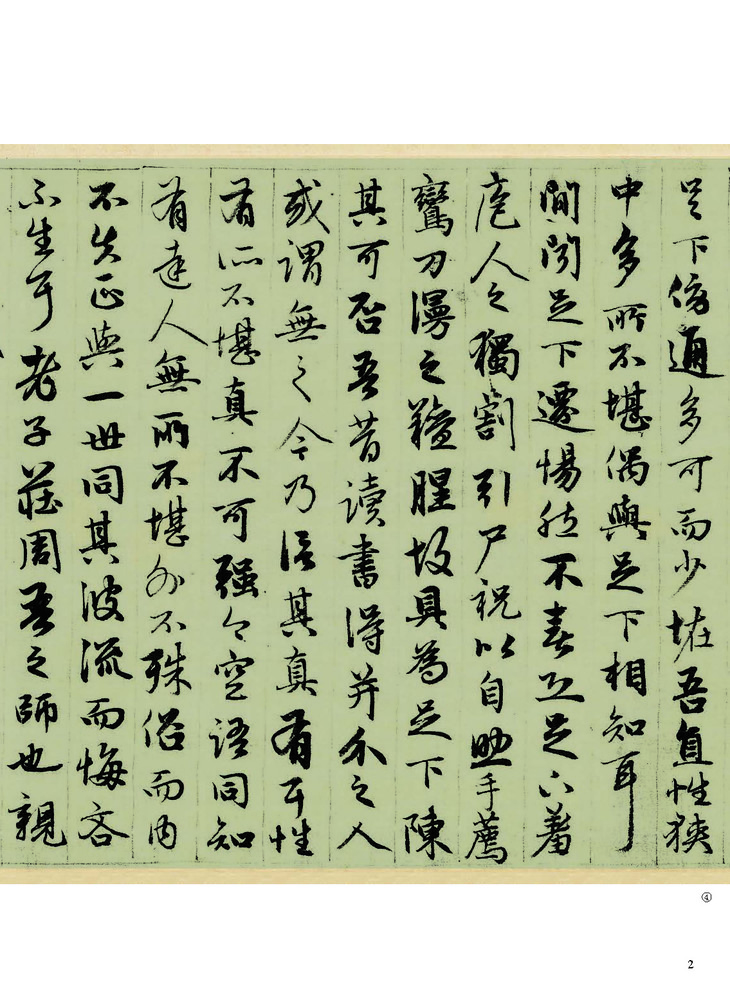 足下傍通多可而少恠吾直性狹
中多所不堪偶與足下相知耳
間聞足下遷惕然不喜恐足下羞
庖人之獨割引尸祝以自助手薦
鸞刀漫之羶腥故具為足下陳
其可否吾昔讀書得并介之人
或謂無之今乃信其真有耳性
有所不堪真不可强今空語同知
有達人無所不堪外不殊俗而內
不失正與一世同其波流而悔吝
不生耳老子莊周吾之師也親
④
2